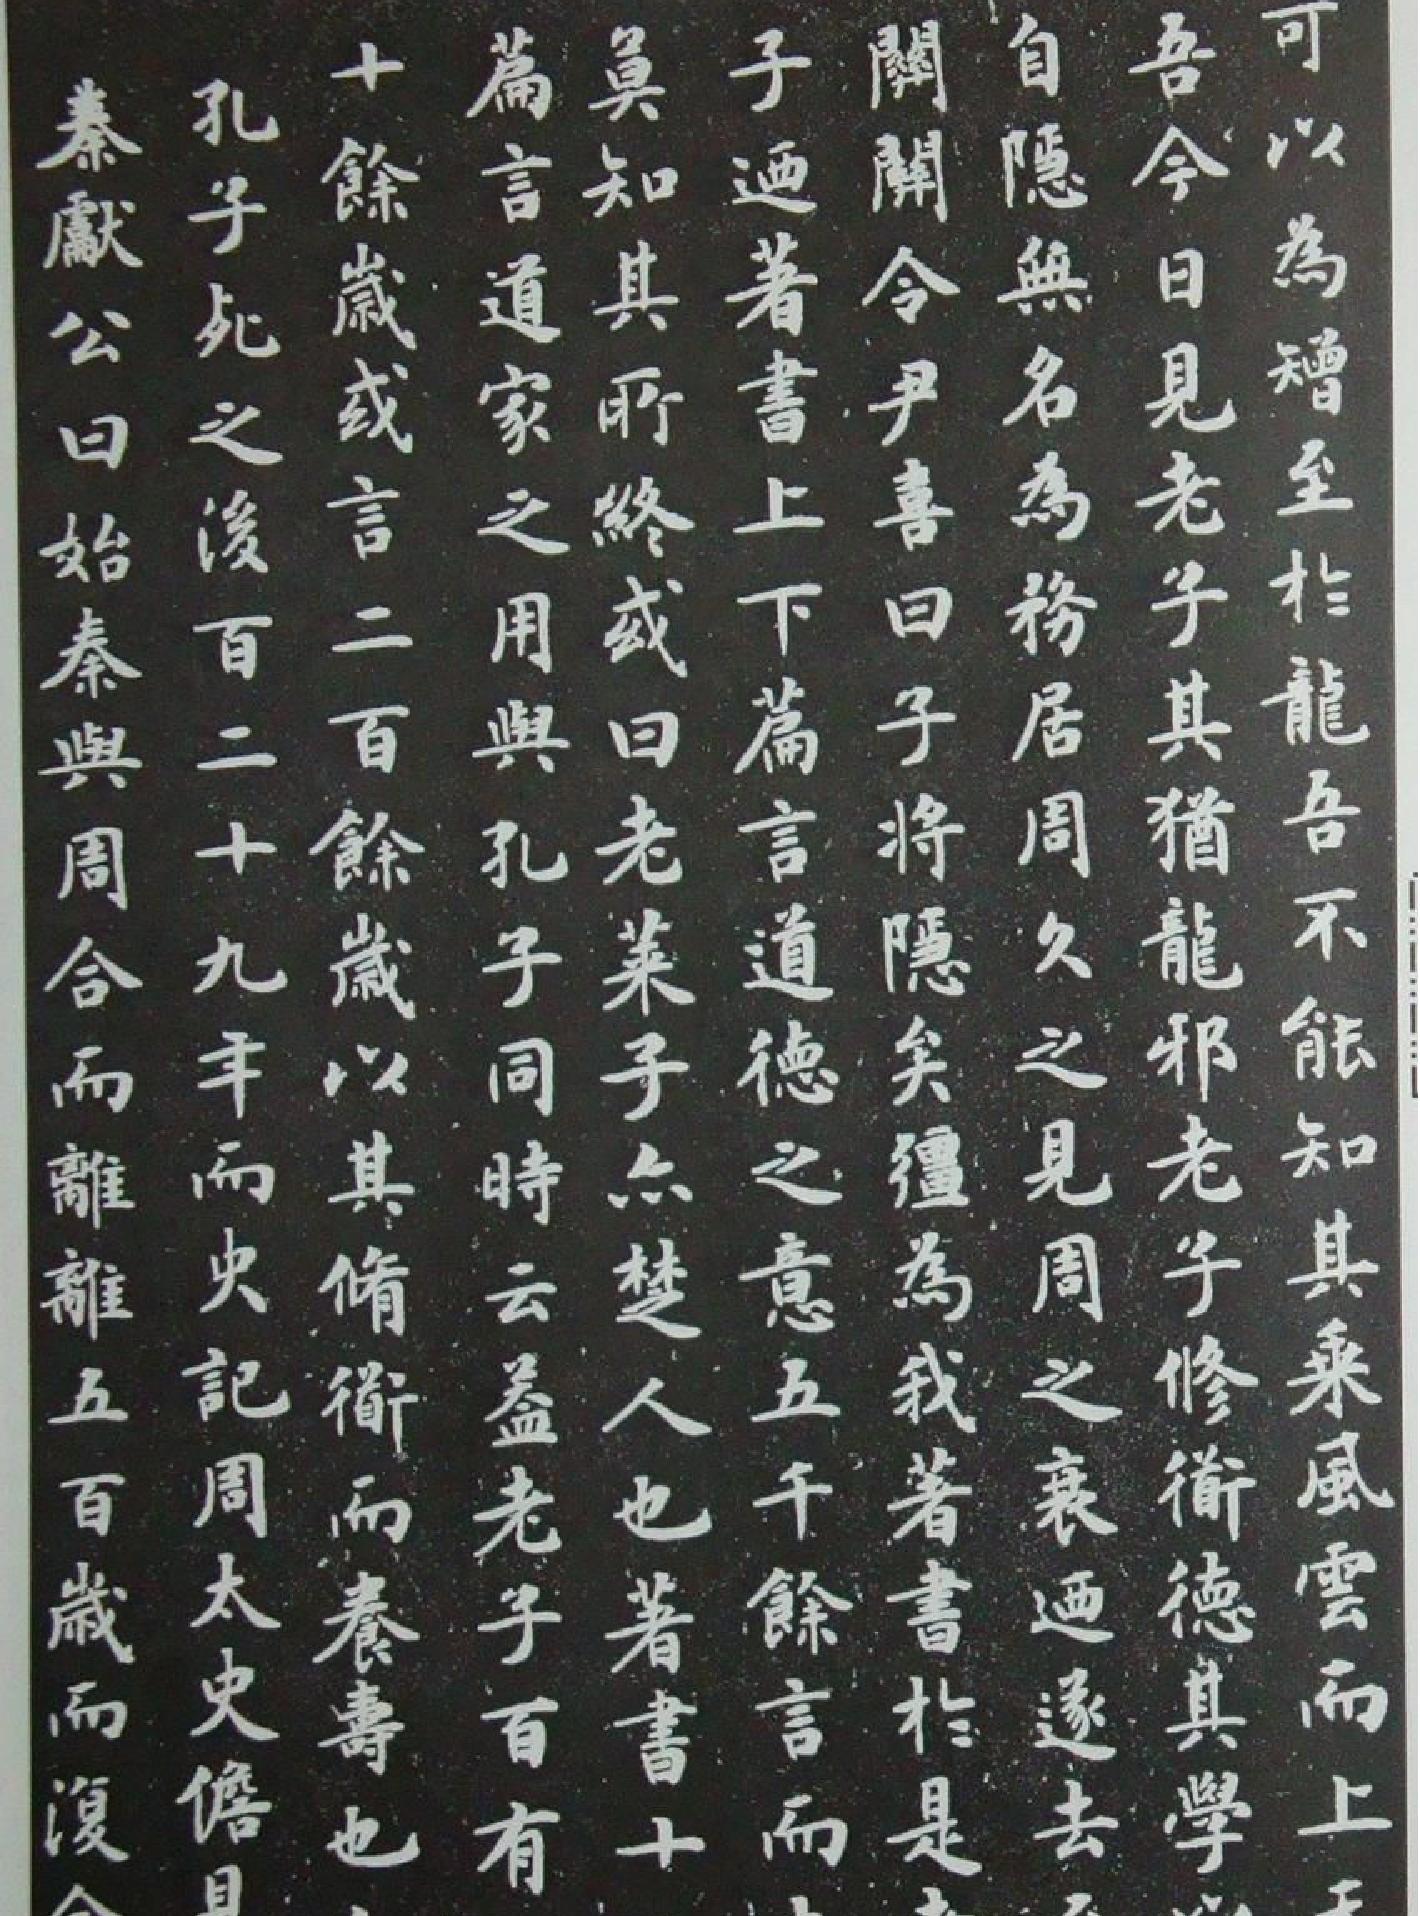 可以為矰至於龍吾不能知其乘風雲而上天
吾今日見老子其猶龍邪老子修衟德其學以
自隱無名為務居周久之見周之衰迺遂去至
關關令尹喜曰子將隱矣彊為我著書於是老
子迺著書上下篇言道德之意五千餘言而去
莫知其所終或曰老萊子亦楚人也著書十
篇言道家之用與孔子同時云葢老子百有
十餘歲或言二百餘歲以其脩衟而養壽也
孔子死之後百二十九年而史記周太史儋見
秦獻公曰始秦與周合而離離五百歲而復合